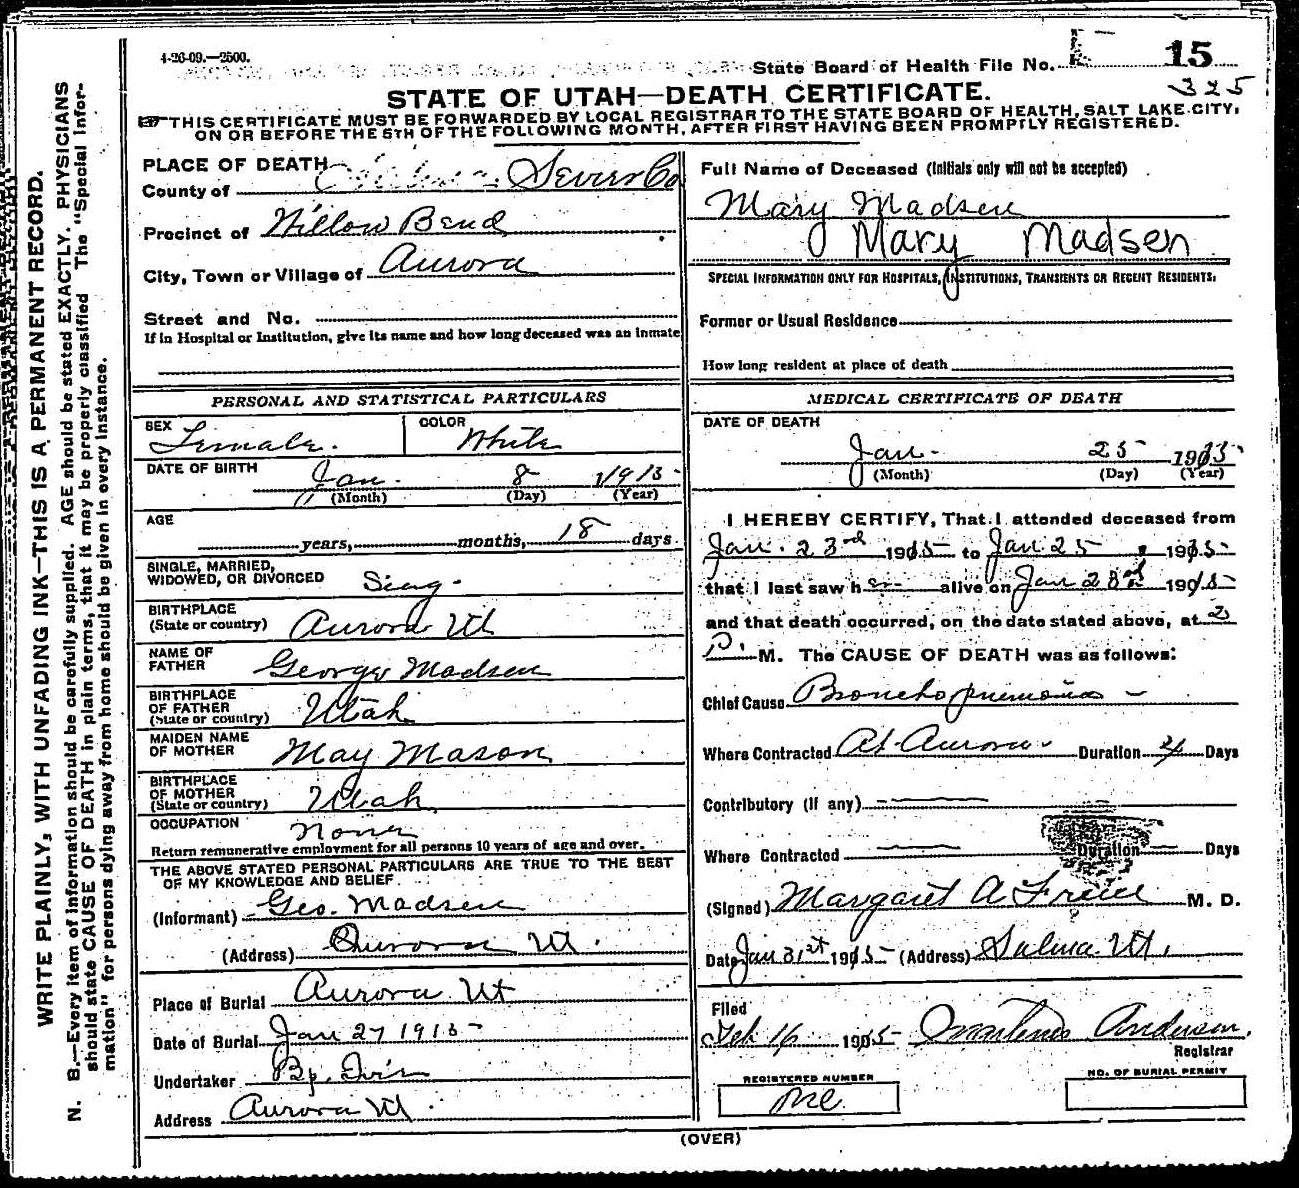 4-26-09.—2500.
State Board of Health File No. 15
325
STATE OF UTAH—DEATH CERTIFICATE.
THIS CERTIFICATE MUST BE FORWARDED BY LOCAL REGISTRAR TO THE STATE BOARD OF HEALTH, SALT LAKE CITY,
ON OR BEFORE THE 5TH OF THE FOLLOWING MONTH, AFTER FIRST HAVING BEEN PROMPTLY REGISTERED.
WRITE PLAINLY, WITH UNFADING INK—THIS IS A PERMANENT RECORD.
N. B.—Every item of information should be carefully supplied. AGE should be stated EXACTLY. PHYSICIANS
should state CAUSE OF DEATH in plain terms, that it may be properly classified The "Special Infor-
mation" for persons dying away from home should be given in every instance.
PLACE OF DEATH
County of Sevier Co
Precinct of Willow Bend
City, Town or Village of Aurora
Street and No.
If in Hospital or Institution, give its name and how long deceased was an inmate
PERSONAL AND STATISTICAL PARTICULARS
SEX Female.
COLOR White
DATE OF BIRTH Jan. 8 1915
(Month) (Day) (Year)
AGE
years, months, 18 days.
SINGLE, MARRIED,
WIDOWED, OR DIVORCED Sing.
BIRTHPLACE
(State or country) Aurora Ut
NAME OF
FATHER George Madsen
BIRTHPLACE
OF FATHER
(State or country) Utah
MAIDEN NAME
OF MOTHER May Mason
BIRTHPLACE
OF MOTHER
(State or country) Utah
OCCUPATION None
Return remunerative employment for all persons 10 years of age and over.
THE ABOVE STATED PERSONAL PARTICULARS ARE TRUE TO THE BEST
OF MY KNOWLEDGE AND BELIEF
(Informant) Geo. Madsen
(Address) Aurora Ut.
Place of Burial Aurora Ut
Date of Burial Jan 27 1915
Undertaker Bp.
Address Aurora Ut.
Full Name of Deceased (Initials only will not be accepted)
Mary Madsen
Mary Madsen
SPECIAL INFORMATION ONLY FOR HOSPITALS, INSTITUTIONS, TRANSIENTS OR RECENT RESIDENTS.
Former or Usual Residence
How long resident at place of death
MEDICAL CERTIFICATE OF DEATH
DATE OF DEATH
Jan. 25 1915
(Month) (Day) (Year)
I HEREBY CERTIFY, That I attended deceased from
Jan. 23rd 1915 to Jan. 25, 1915
that I last saw her alive on Jan 23rd 1915
and that death occurred, on the date stated above, at 2
P. M. The CAUSE OF DEATH was as follows:
Chief Cause Broncho pneumonia
Where Contracted At Aurora. Duration 4 Days
Contributory (if any)
Where Contracted Duration Days
(Signed) Margaret A M. D.
Date Jan 31st 1915 (Address) Salina Ut.
Filed
Feb 16 1915 Anderson,
Registrar
REGISTERED NUMBER
NO. OF BURIAL PERMIT
(OVER)